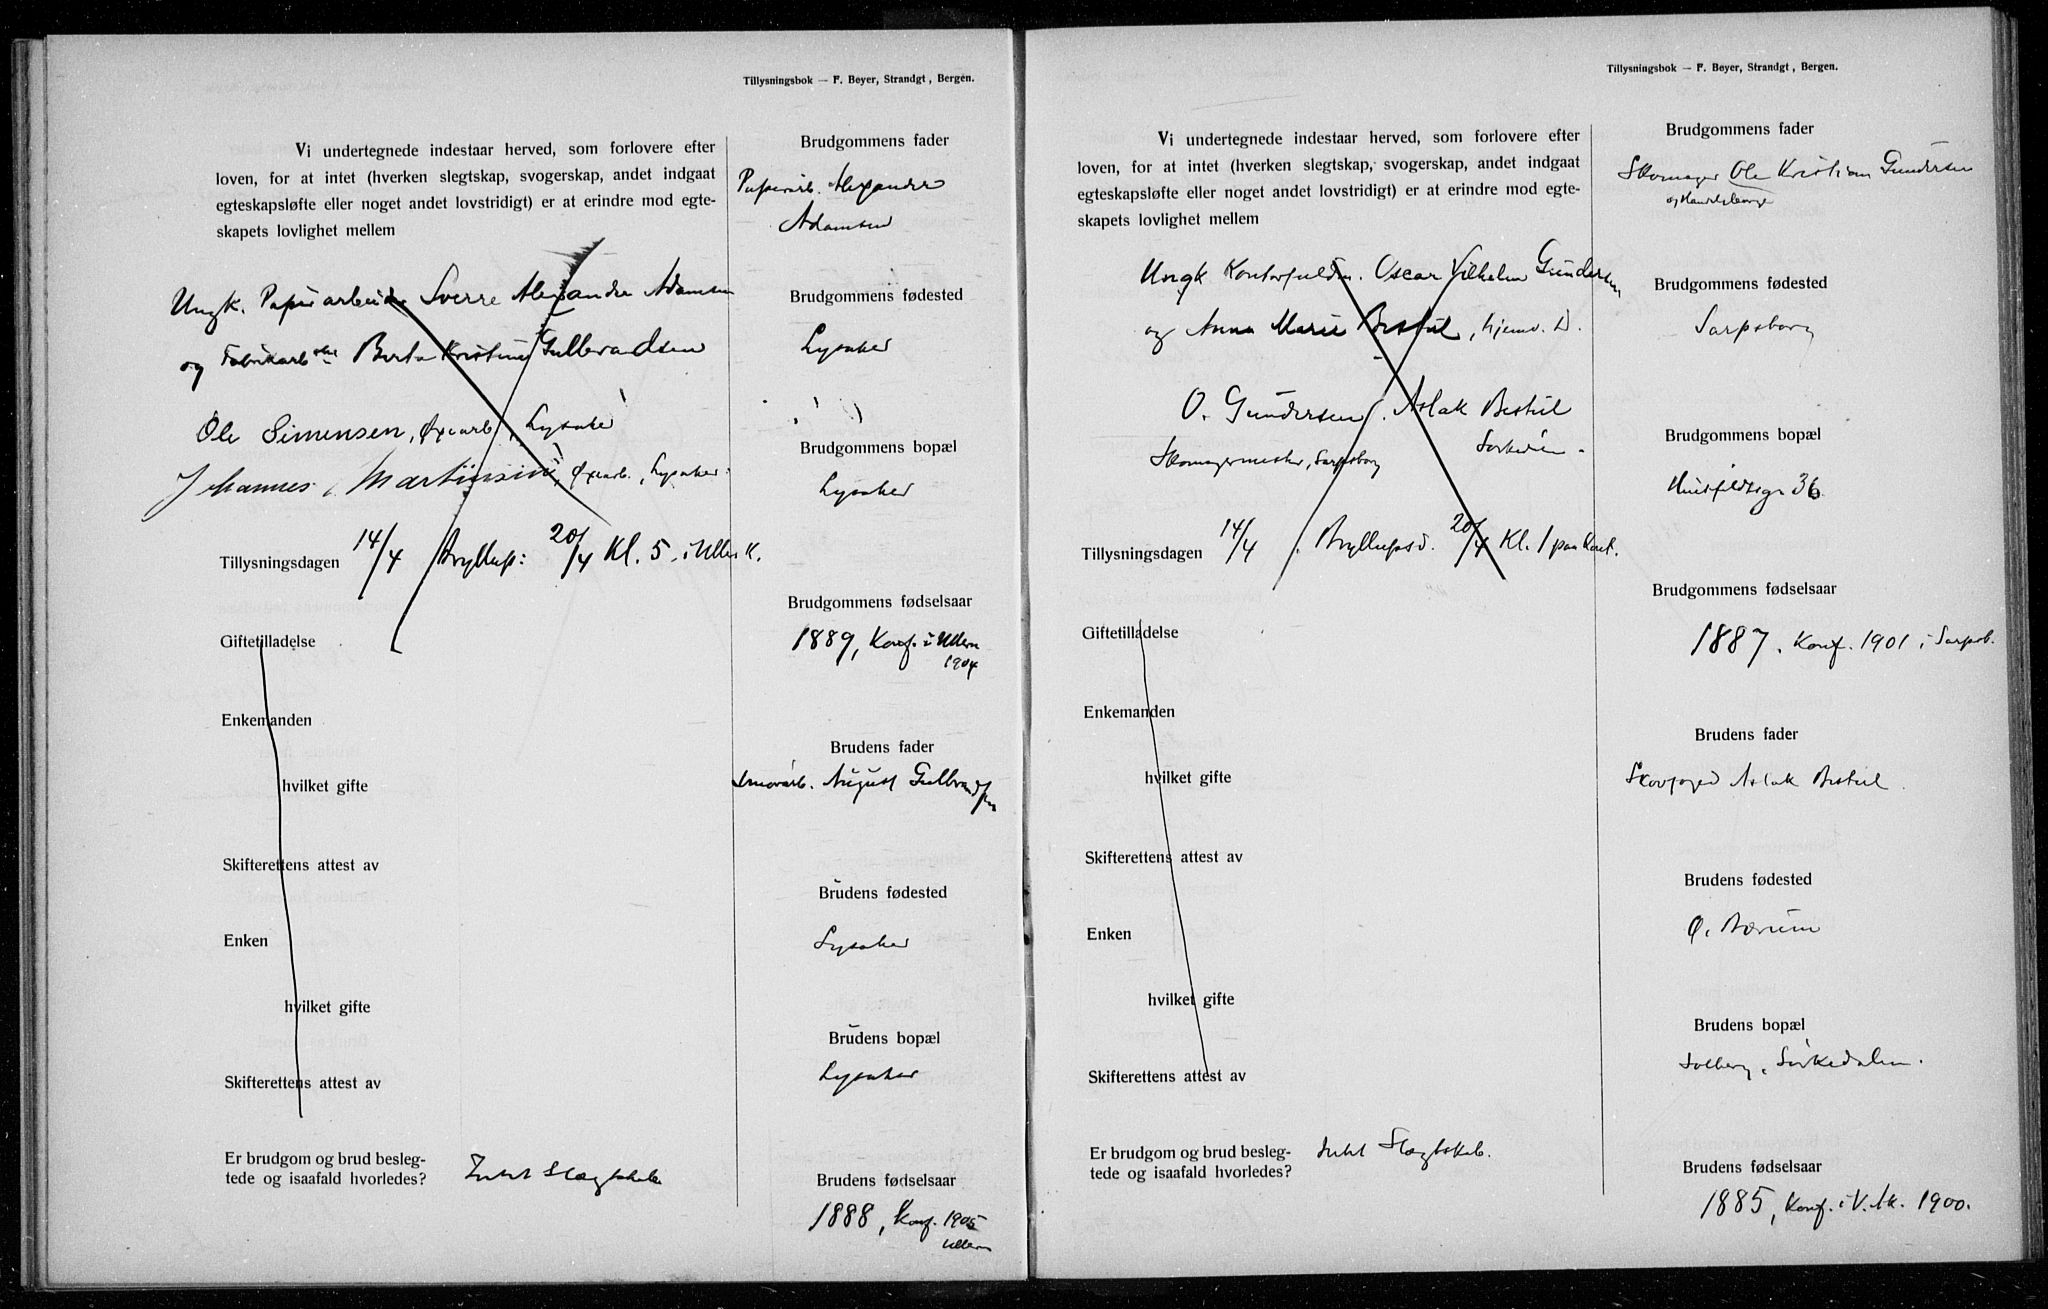 Tillysningsbok — F. Beyer, Strandgt, Bergen.
Vi undertegnede indestaar herved, som forlovere efter
loven, for at intet (hverken slegtskap, svogerskap, andet indgaat
egteskapsløfte eller noget andet lovstridigt) er at erindre mod egte-
skapets lovlighet mellem
Ungk. Papirarbeider Sverre Alexander Adamsen
og Fabrikarb.ske Berta Kristine Gulbrandsen
Ole Simensen, Lysaker
Johannes Martinsen, Lysaker
Tillysningsdagen 14/4 Bryllup: 20/4 Kl. 5. i Ullern K.
Giftetilladelse
Enkemanden
hvilket gifte
Skifterettens attest av
Enken
hvilket gifte
Skifterettens attest av
Er brudgom og brud besleg-
tede og isaafald hvorledes? Intet Slægtskab
Brudgommens fader
Papirarb. Alexander
Adamsen
Brudgommens fødested
Lysaker
Brudgommens bopæl
Lysaker
Brudgommens fødselsaar
1889, Konf. i Ullern
1904
Brudens fader
August Gulbrandsen
Brudens fødested
Lysaker
Brudens bopæl
Lysaker
Brudens fødselsaar
1888, Konf. 1905
Ullern
Tillysningsbok — F. Beyer, Strandgt, Bergen.
Vi undertegnede indestaar herved, som forlovere efter
loven, for at intet (hverken slegtskap, svogerskap, andet indgaat
egteskapsløfte eller noget andet lovstridigt) er at erindre mod egte-
skapets lovlighet mellem
Ungk. Kontorfuldm. Oscar Vilhelm Gundersen
og Anna Marie Bestul, hjemv. D.
O. Gundersen. Aslak Bestul
Skomagermester, Sarpsborg Sørkedalen
Tillysningsdagen 14/4. Bryllupsd. 20/4 Kl. 1 paa Kont.
Giftetilladelse
Enkemanden
hvilket gifte
Skifterettens attest av
Enken
hvilket gifte
Skifterettens attest av
Er brudgom og brud besleg-
tede og isaafald hvorledes? Intet Slægtskab.
Brudgommens fader
Skomager Ole Kristian Gundersen
Brudgommens fødested
Sarpsborg
Brudgommens bopæl
Huitfeldtsgt 36
Brudgommens fødselsaar
1887. Konf. 1901 i Sarpsb.
Brudens fader
Skovfoged Aslak Bestul
Brudens fødested
Ø. Bærum
Brudens bopæl
Solberg, Sørkedalen.
Brudens fødselsaar
1885, Konf. i V. Ak. 1900.